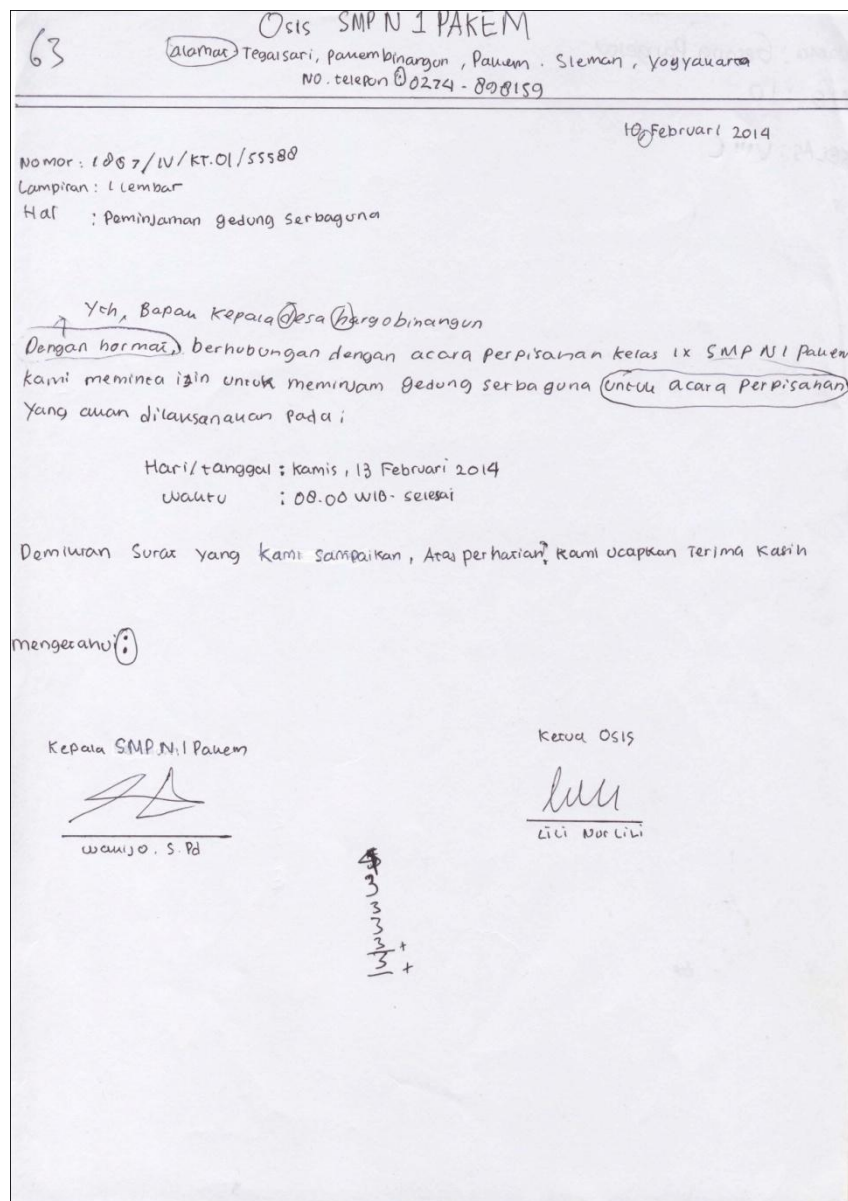 63
Osis SMP N 1 PAKEM
alamat Tegalsari, pakembinangun, Pakem. Sleman, Yogyakarta
NO. telepon : 0274 - 898159
10 Februari 2014
Nomor : 1867/IV/KT.01/55588
Lampiran : 1 lembar
Hal : Peminjaman gedung serbaguna
Yth, Bapak Kepala desa hargobinangun
Dengan hormat, berhubungan dengan acara perpisahan kelas IX SMP N 1 Pakem
kami meminta izin untuk meminjam gedung serbaguna untuk acara perpisahan
yang akan dilaksanakan pada :
Hari/tanggal : Kamis, 13 Februari 2014
waktu : 08.00 WIB - selesai
Demikian Surat yang kami sampaikan, Atas perhatian, kami ucapkan Terima Kasih
mengetahui :
Kepala SMP N. 1 Pakem
Ketua OSIS
wakijo. S. Pd
Lili Nur Lili
4
3
3
3
3 +
3 +